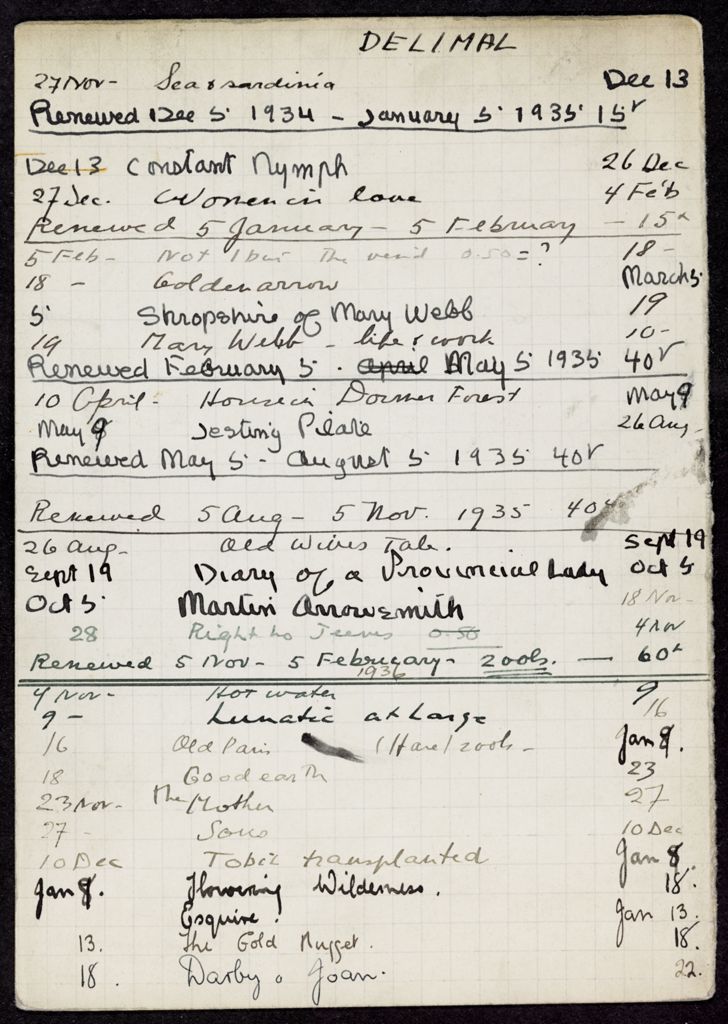 DELIMAL
27 Nov - Sea & sardinia Dec 13
Renewed Dec 5 1934 - January 5 1935 15r
Dec 13 Constant Nymph 26 Dec
27 Dec. Women in love 4 Feb
Renewed 5 January - 5 February - 15r
5 Feb - Not I but The wind 0.50 = ? 18 -
18 - Golden arrow March 5
5 Shropshire of Mary Webb 19
19 Mary Webb - life & work 10 -
Renewed February 5 - April May 5 1935 40r
10 April - House in Dormer Forest May 9
May 9 Jesting Pilate 26 Aug -
Renewed May 5 - August 5 1935 40r
Renewed 5 Aug - 5 Nov. 1935 40r
26 Aug - Old Wives Tale. Sept 19
Sept 19 Diary of a Provincial Lady Oct 5
Oct 5 Martin Arrowsmith 18 Nov -
28 Right ho Jeeves 0.50 4 Nov
Renewed 5 Nov - 5 February - 2 vols. — 60r
1936
4 Nov - Hot water 9
9 - Lunatic at Large 16
16 Old Paris (Hare) 2 vols - Jan 8.
18 Good earth 23
23 Nov - The Mother 27
27 - Sons 10 Dec
10 Dec Tobit transplanted Jan 8.
Jan 8. Flowering Wilderness. 18.
Esquire. Jan 13.
13. The Gold Nugget. 18.
18. Darby & Joan. 22.